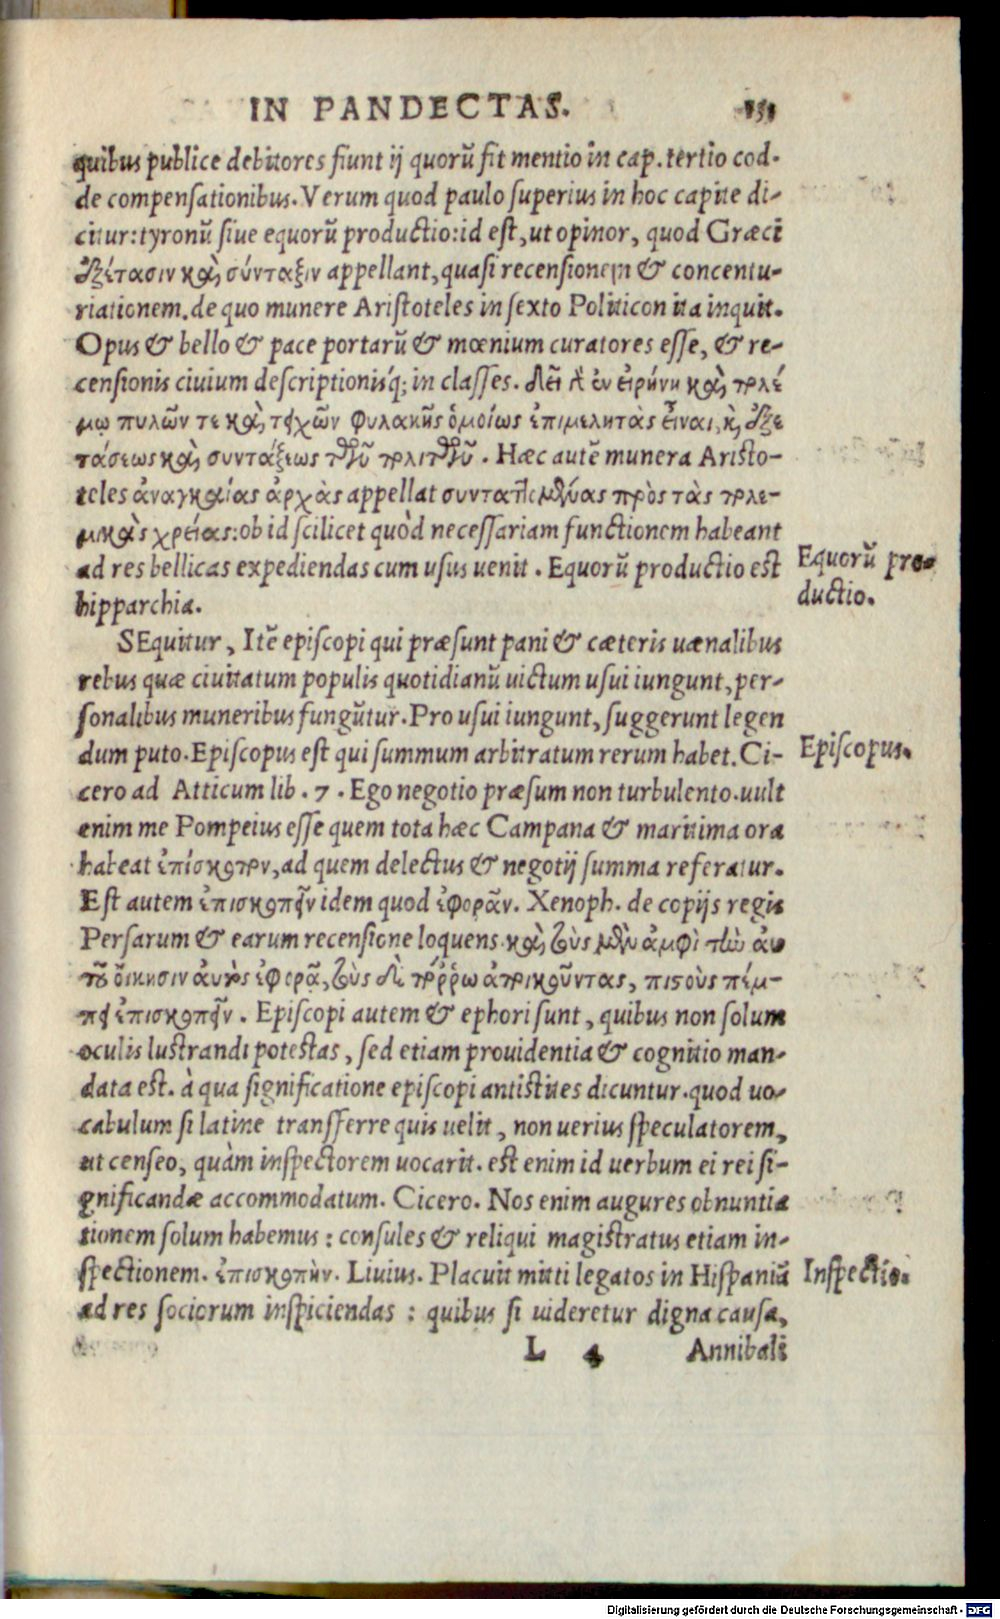 IN PANDECTAS.
quibus publice debitores fiunt ij quorũ fit mentio in cap. tertio cod.
de compensationibus. Verum quod paulo superius in hoc capite di-
citur: tyronũ siue equorũ productio: id est, ut opinor, quod Græci
ἐξέτασιν καὶ σύνταξιν appellant, quasi recensionem & concentu-
riationem. de quo munere Aristoteles in sexto Politicon ita inquit.
Opus & bello & pace portarũ & mœnium curatores esse, & re-
censionis ciuium descriptionisq́; in classes. Δεῖ δὲ ἐν εἰρήνη καὶ πολέ
μῳ πυλῶν τε καὶ τειχῶν φυλακῆς ὁμοίως ἐπιμελητὰς εἶναι, κỳ ἐξε
τάσεως καὶ συντάξεως τῶν πολιτῶν. Hæc autẽ munera Aristo-
teles ἀναγκαίας ἀρχὰς appellat συνταττομένας πρὸς τὰς πολε-
μικὰς χρείας: ob id scilicet quòd necessariam functionem habeant
ad res bellicas expediendas cum usus uenit. Equorũ productio est
hipparchia.
Equorũ pro-
ductio.
SEquitur, Itẽ episcopi qui præsunt pani & cæteris uænalibus
rebus quæ ciuitatum populis quotidianũ uictum usui iungunt, per-
sonalibus muneribus fungũtur. Pro usui iungunt, suggerunt legen
dum puto. Episcopus est qui summum arbitratum rerum habet. Ci-
cero ad Atticum lib. 7. Ego negotio præsum non turbulento. uult
enim me Pompeius esse quem tota hæc Campana & maritima ora
habeat ἐπίσκοπον, ad quem delectus & negotij summa referatur.
Est autem ἐπισκοπεῖν idem quod ἐφορᾶν. Xenoph. de copijs regis
Persarum & earum recensione loquens. καὶ τοὺς μὲν ἀμφὶ τὴν ἑαυ
τοῦ οἴκησιν αὐτὸς ἐφορᾷ, τοὺς δὲ πόῤῥω ἀποικοῦντας, πιστοὺς πέμ-
πει ἐπισκοπεῖν. Episcopi autem & ephori sunt, quibus non solum
oculis lustrandi potestas, sed etiam prouidentia & cognitio man-
data est. à qua significatione episcopi antistites dicuntur. quod uo-
cabulum si latine transferre quis uelit, non uerius speculatorem,
ut censeo, quàm inspectorem uocarit. est enim id uerbum ei rei si-
gnificandæ accommodatum. Cicero. Nos enim augures obnuntia
tionem solum habemus: consules & reliqui magistratus etiam in-
spectionem. ἐπισκοπὴν. Liuius. Placuit mitti legatos in Hispaniã
ad res sociorum inspiciendas: quibus si uideretur digna causa,
Episcopus.
Inspectio.
L 4 Annibali
Digitalisierung gefördert durch die Deutsche Forschungsgemeinschaft - DFG